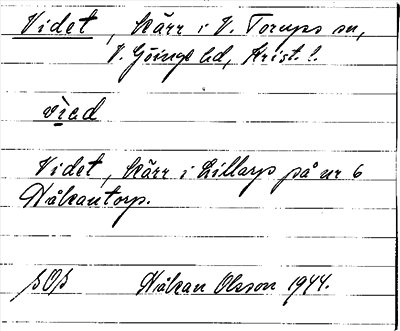 Videt, kärr i V. Torups sn,
V. Göinge hd, Krist. l.
vìəd
Videt, kärr i Lillarp på nr 6
Håkantorp.
SOS Håkan Olsson 1944.